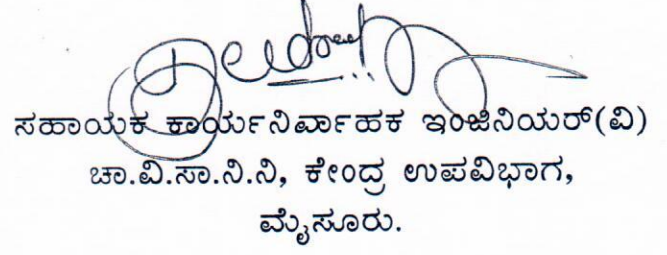 ಸಹಾಯಕ ಕಾರ್ಯನಿರ್ವಾಹಕ ಇಂಜಿನಿಯರ್(ವಿ)
ಚಾ.ವಿ.ಸಾ.ನಿ.ನಿ, ಕೇಂದ್ರ ಉಪವಿಭಾಗ,
ಮೈಸೂರು.